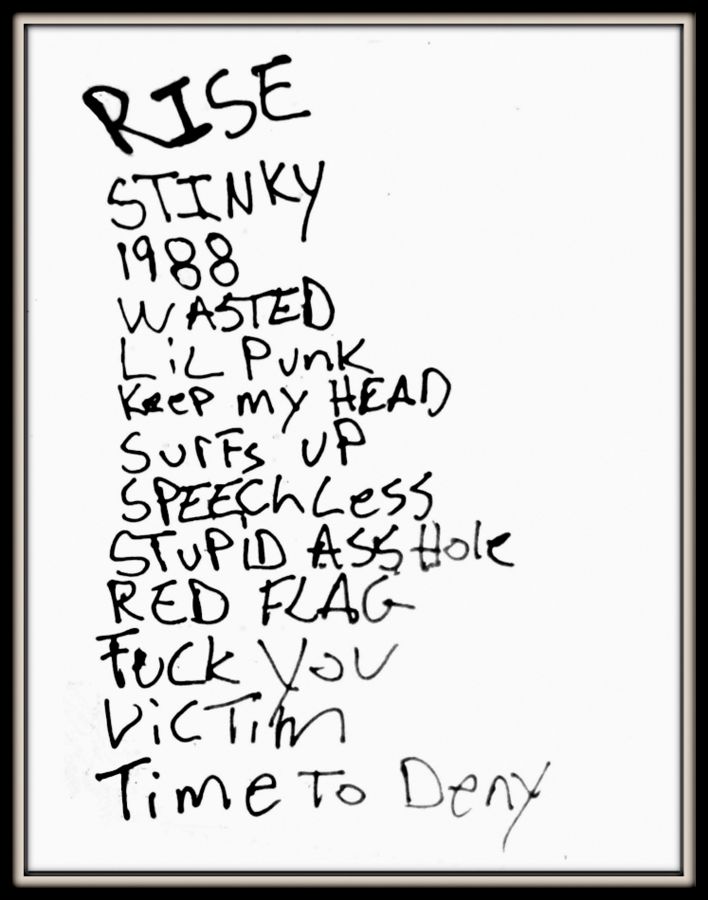 RISE
STINKY
1988
WASTED
LiL Punk
Keep my HEAD
SurFs UP
SPEEChLess
STuPID ASSHole
RED FLAG
Fuck You
VicTim
Time To Deny